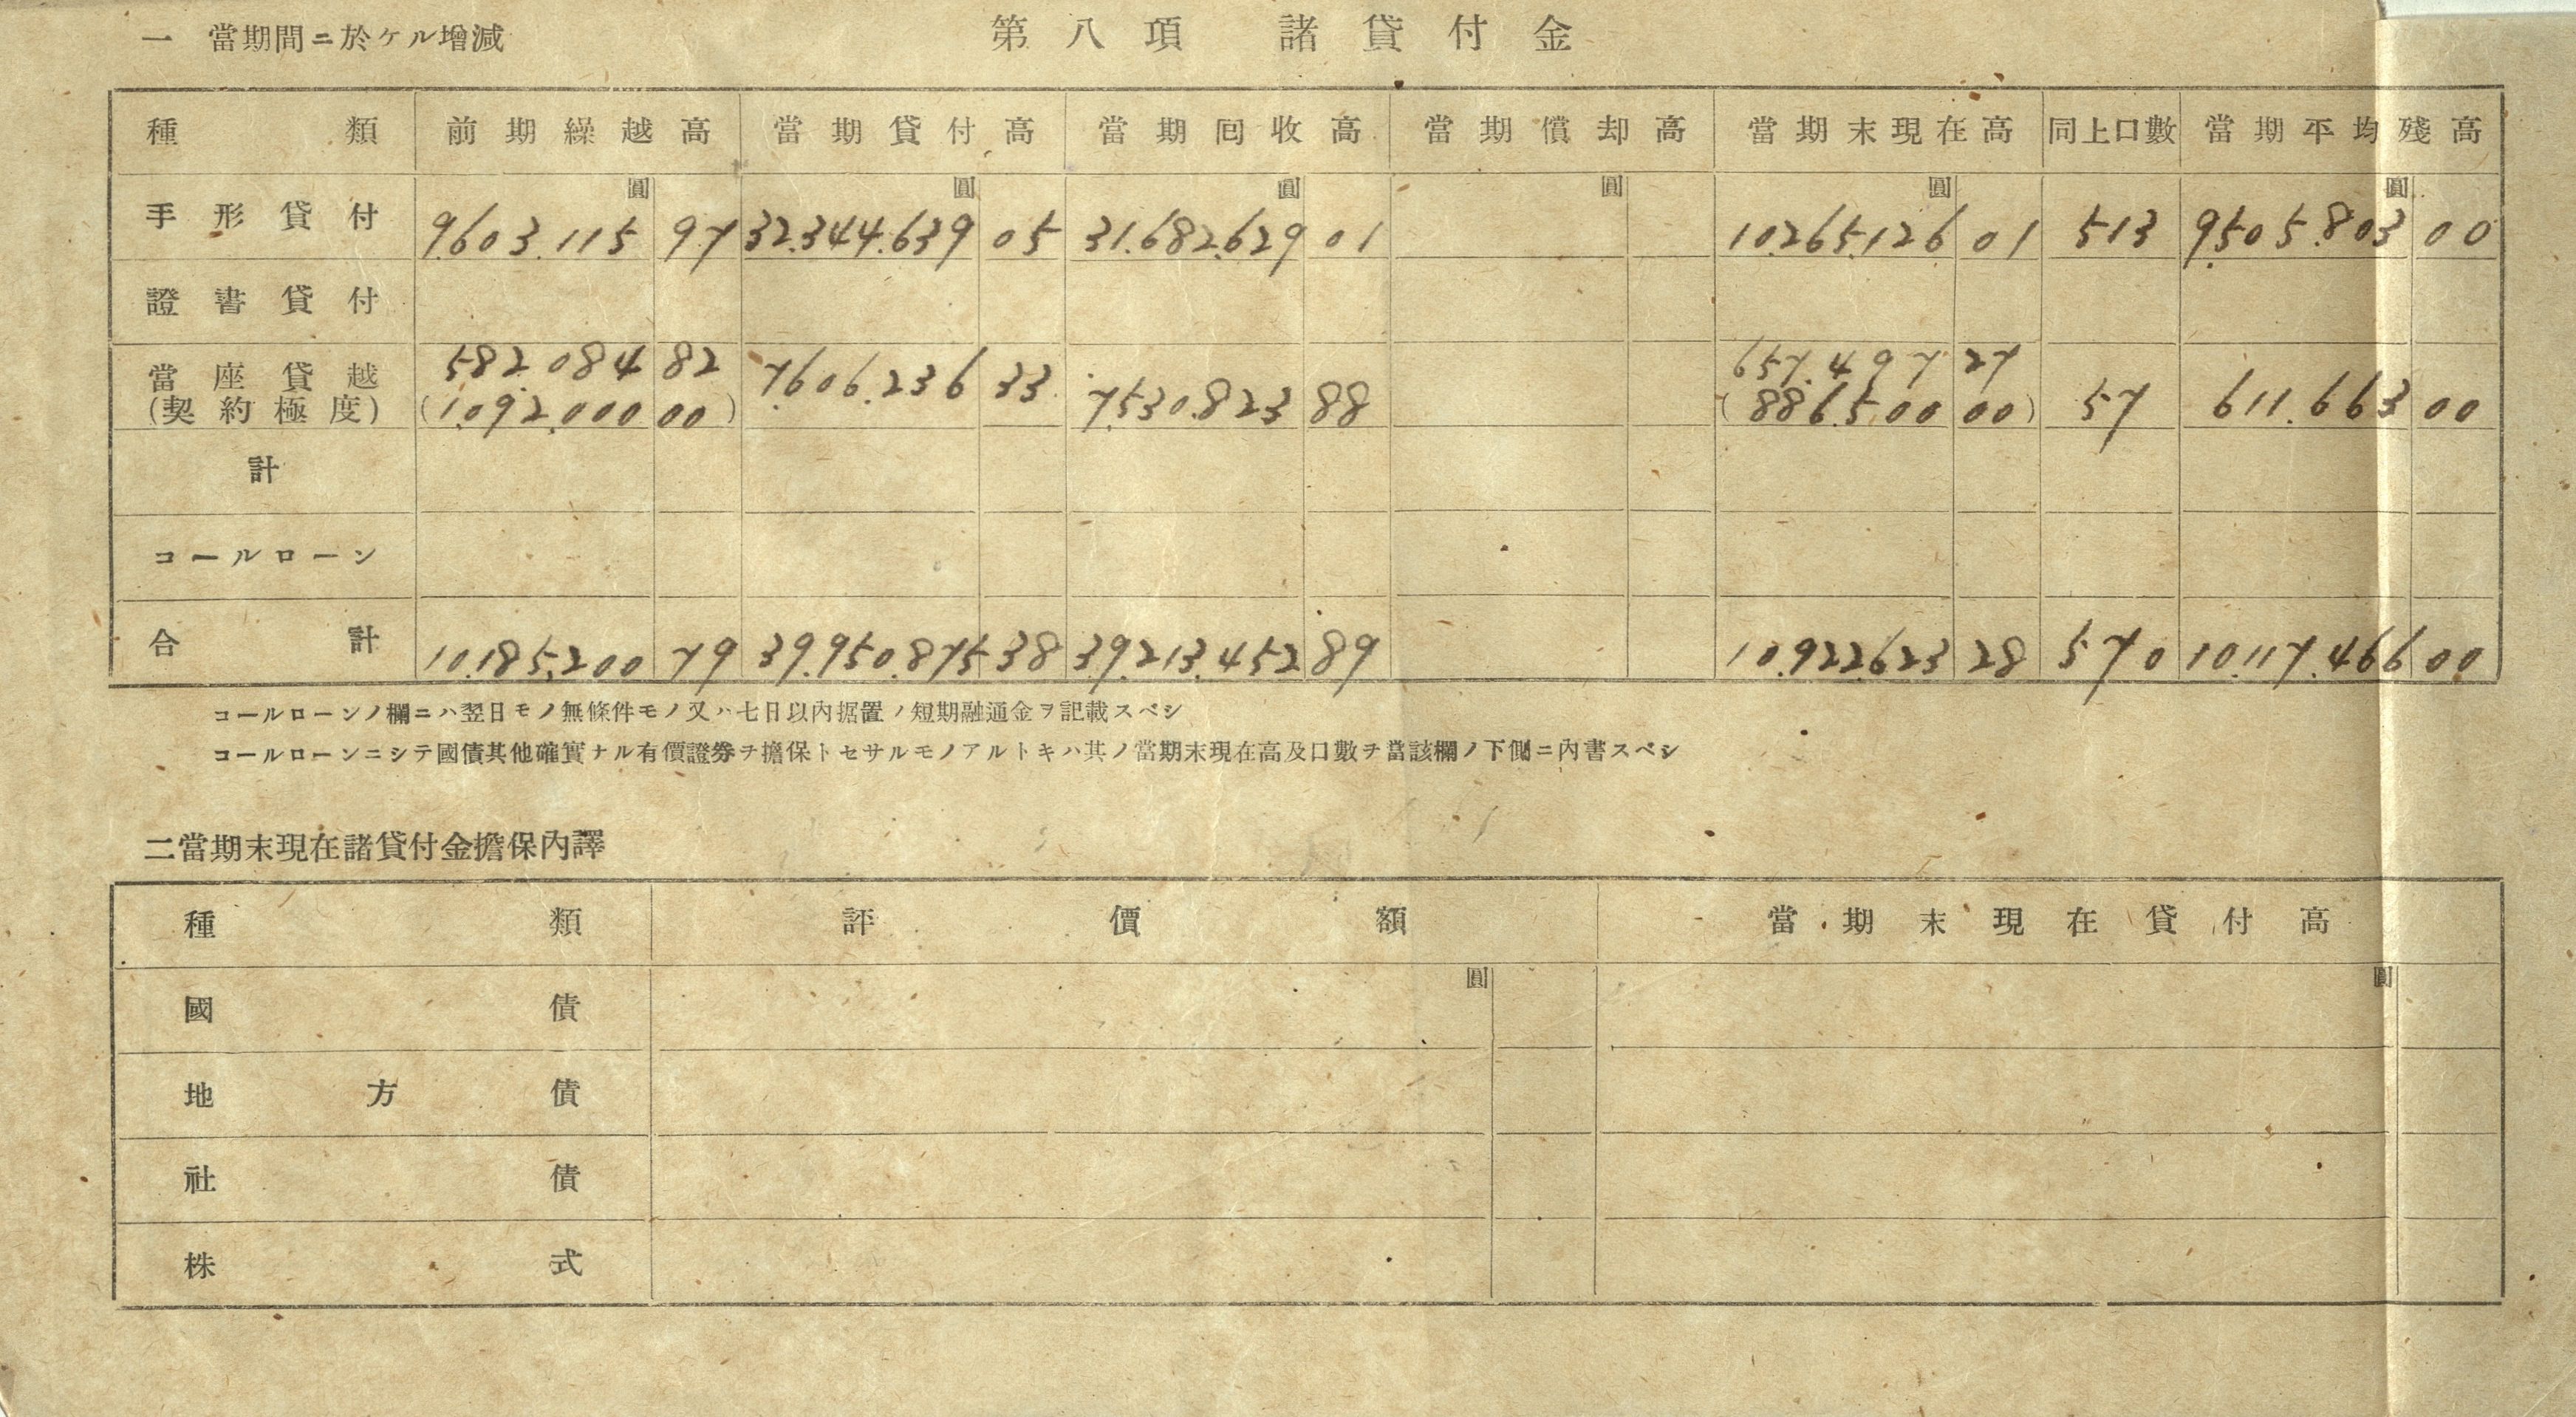 第八項 諸貸付金
一 當期間ニ於ケル增減
種類 前期繰越高 當期貸付高 當期回收高 當期償却高 當期末現在高 同上口數 當期平均殘高
圓 圓 圓 圓 圓 圓
手形貸付 9.603.115 97 32.344.639 05 31.682.629 01 10.265.126 01 513 9.505.803 00
證書貸付
當座貸越 582.084 82 7.606.236 33 7.530.823 88 657.497 27 57 611.663 00
(契約極度) (1.092.000 00) (886.500 00)
計
コールローン
合計 10.185.200 79 39.950.875 38 39.213.452 89 10.922.623 28 570 10.117.466 00
コールローンノ欄ニハ翌日モノ無條件モノ又ハ七日以內据置ノ短期融通金ヲ記載スベシ
コールローンニシテ國債其他確實ナル有價證券ヲ擔保トセサルモノアルトキハ其ノ當期末現在高及口數ヲ當該欄ノ下側ニ內書スベシ
二當期末現在諸貸付金擔保內譯
種類 評價額 當期末現在貸付高
圓 圓
國債
地方債
社債
株式